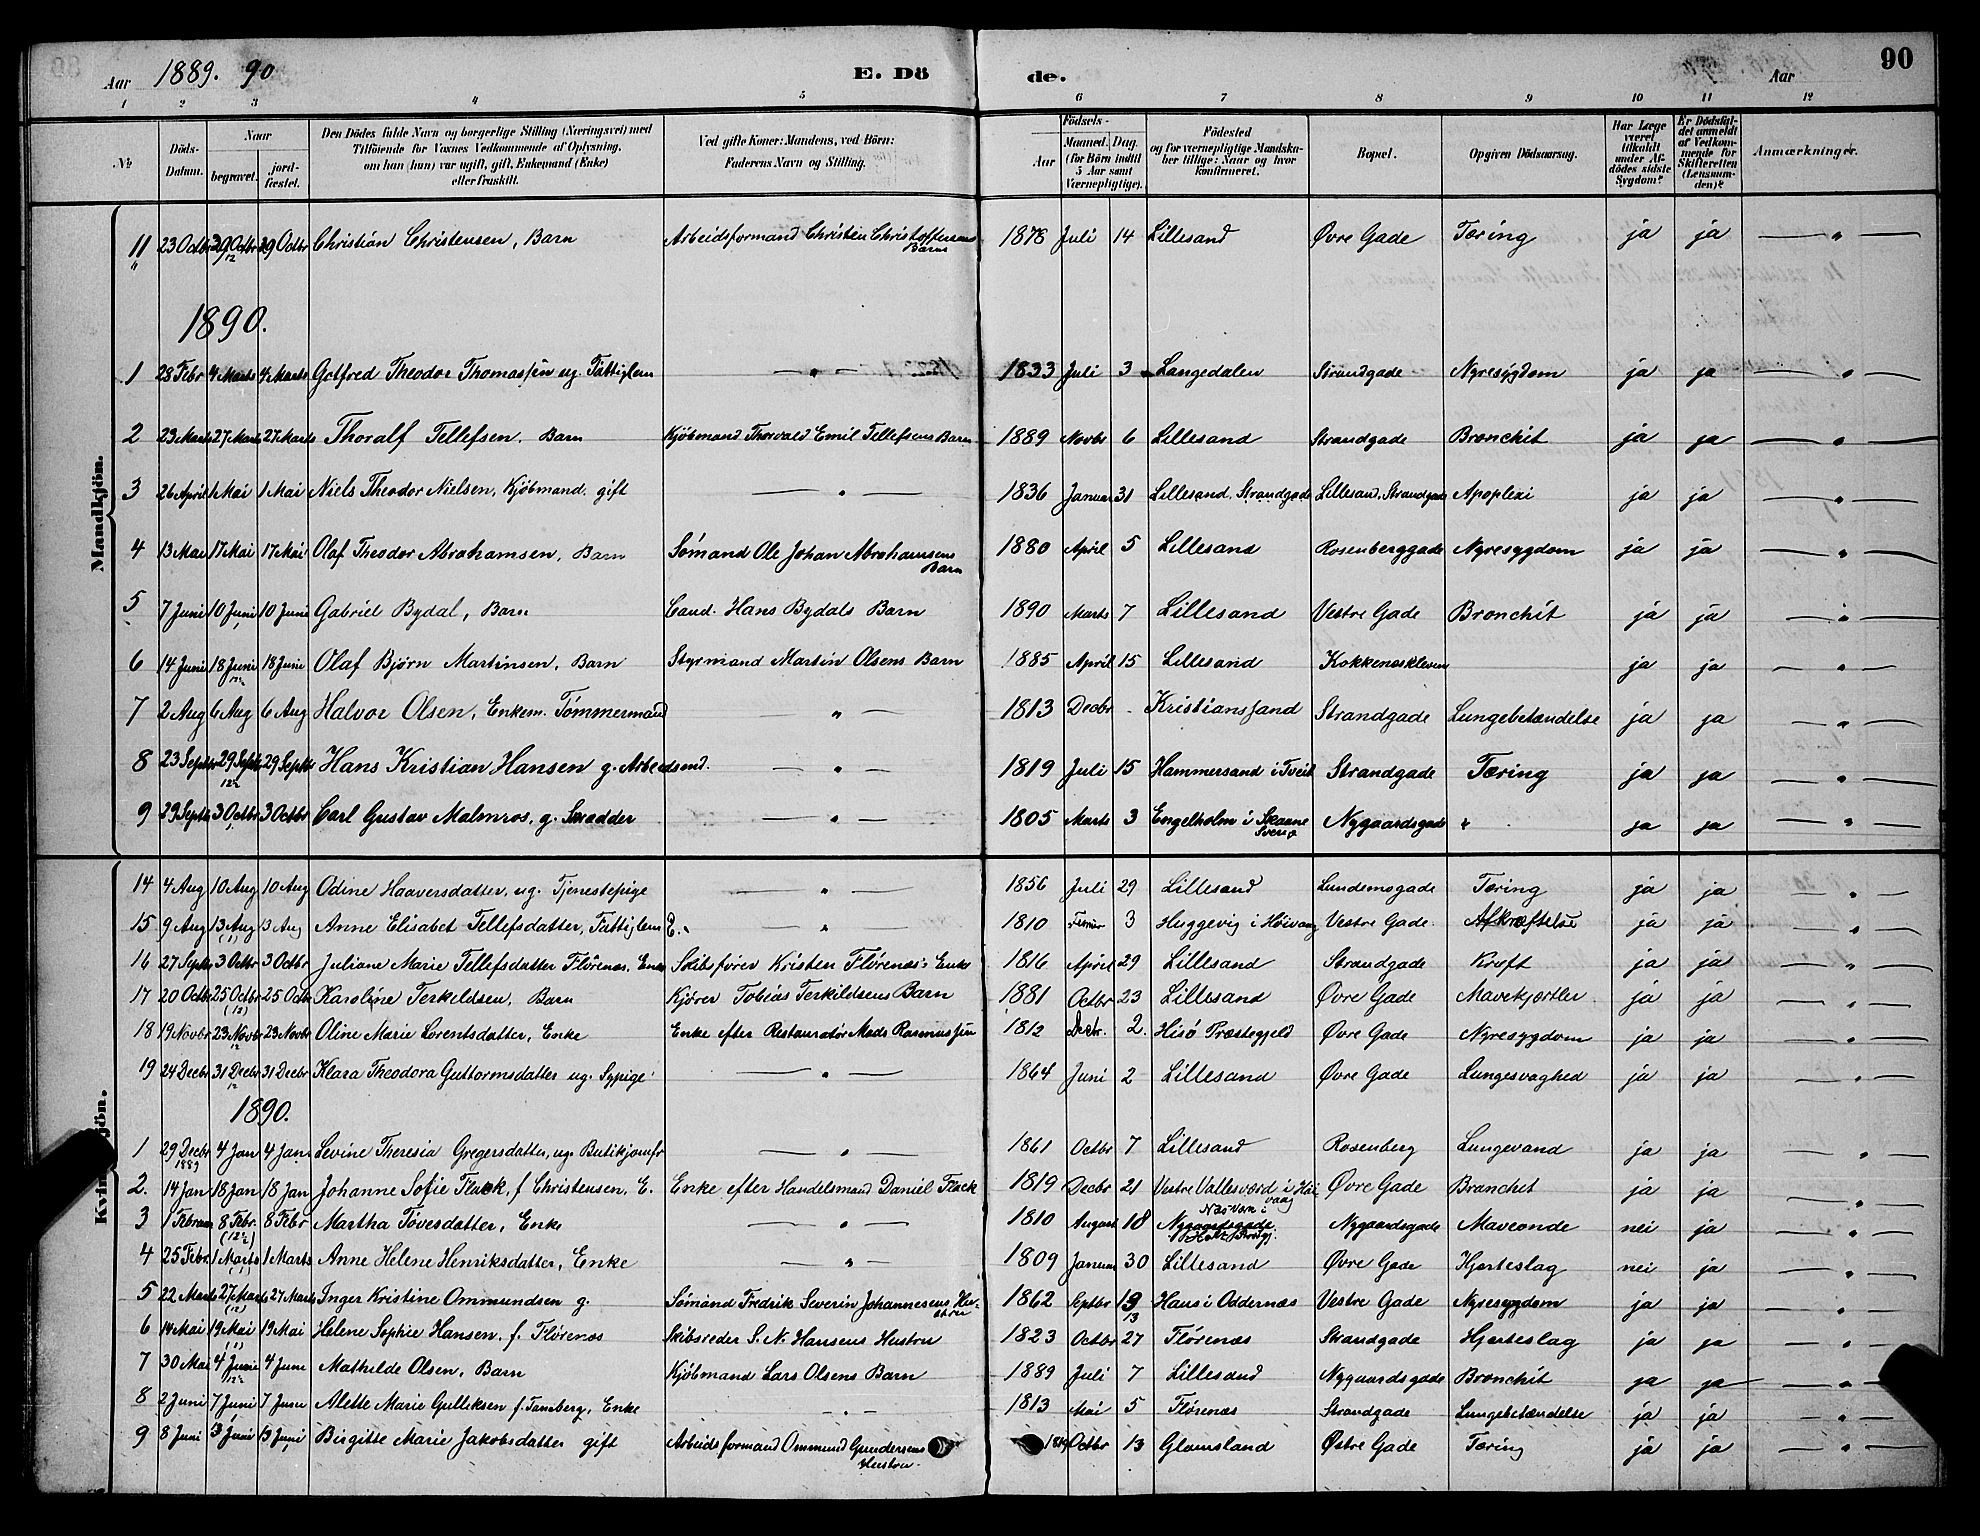 Aar 1889. 90 E. Dö de. Aar 90
1 2 3 4 5 6 7 8 9 10 11 12
No
Döds-Datum.
Naar
begravet.
jord-fæstet.
Den Dödes fulde Navn og borgerlige Stilling (Næringsvei) med
Tilföiende for Voxnes Vedkommende af Oplysning,
om han (hun) var ugift, gift, Enkemand (Enke)
eller fraskilt.
Ved gifte Koner: Mandens, ved Börn:
Faderens Navn og Stilling.
Födsels-
Aar
Maaned. Dag.
(for Börn indtil
5 Aar samt
Værnepligtige).
Födested
og for værnepligtige Mandska-
ber tillige: Naar og hvor
konfirmeret.
Bopæl.
Opgiven Dödsaarsag.
Har Læge
været
tilkaldt
under Af-
dödes sidste
Sygdom?
Er Dödsfal-
det anmeldt
af Vedkom-
mende for
Skifteretten
(Lensman-
den)?
Anmærkninger.
Mandkjön.
11 23 Octbr 29 Octbr 29 Octbr Christian Christensen, Barn Arbeidsformand Christen Christoffersens Barn 1878 Juli 14 Lillesand Øvre Gade Tæring ja ja — " —
1890.
1 28 Febr 4 Marts 4 Marts Gotfred Theodor Thomassen ug. Fattiglem — " — 1833 Juli 3 Langedalen Strandgade Nyresygdom ja ja — " —
2 23 Marts 27 Marts 27 Marts Thoralf Tellefsen. Barn Kjöbmand Thorvald Emil Tellefsens Barn 1889 Novbr 6 Lillesand Strandgade Bronchit ja ja — " —
3 26 April 1 Mai 1 Mai Niels Theodor Nielsen, Kjöbmand. gift — " — 1836 Januar 31 Lillesand. Strandgade Lillesand. Strandgade Apoplexi ja ja — " —
4 13 Mai 17 Mai 17 Mai Olaf Theodor Abrahamsen, Barn Sømand Ole Johan Abrahamsens Barn 1880 April 5 Lillesand Rosenberggade Nyresygdom ja ja — " —
5 7 Juni 10 Juni 10 Juni Gabriel Bydal, Barn Cand. Hans Bydals Barn 1890 Marts 7 Lillesand Vestre Gade Bronchit ja ja — " —
6 14 Juni 18 Juni 18 Juni Olaf Bjørn Martinsen, Barn Styrmand Martin Olsens Barn 1885 April 15 Lillesand Kokkenæskleven ja ja — " —
7 2 Aug 6 Aug 6 Aug Halvor Olsen, Enkem. Tømmermand — " — 1813 Decbr - Kristianssand Strandgade Lungebetændelse ja ja — " —
8 23 Septbr 29 Septbr 29 Septbr Hans Kristian Hansen g. Arbeidsmd. — " — 1819 Juli 15 Hammersand i Tveit Strandgade Tæring ja ja — " —
9 29 Septbr 3 Octbr 3 Octbr Carl Gustav Malmros, g. Snedder — " — 1805 Marts 3 Engelholm i Skaane Sverig Nygaardsgade " ja ja — " —
Kvindekjön.
14 4 Aug 10 Aug 10 Aug Odine Haaversdatter, ug. Tjenestepige — " — 1856 Juli 29 Lillesand Lundemogade Tæring ja ja — " —
15 9 Aug 13 Aug 13 Aug Anne Elisabet Tellefsdatter, Fattiglem E. — " — 1810 Februar 3 Huggevig i Høivaag Vestre Gade. Afkræftelse ja ja — " —
16 27 Septbr 3 Octbr 3 Octbr Juliane Marie Tellefsdatter Flörenæs, Enke Skibsfører Kristen Flörenæs's Enke 1816 April 29 Lillesand Strandgade Kræft ja ja — " —
17 20 Octbr 25 Octbr 25 Octbr Karoline Terkildsen, Barn Kjører Tobias Terkildsens Barn 1881 Octbr 23 Lillesand Øvre Gade Mavekjertler ja ja — " —
18 19 Novbr 23 Novbr 23 Novbr Oline Marie Lorentsdatter, Enke Enke efter Restauratør Mads Rasmussen 1812 Decbr. 2. Hisö Præstegjeld Øvre Gade Nyresygdom ja ja — " —
19 24 Decbr 31 Decbr 31 Decbr Klara Theodora Guttormsdatter ug. Sypige — " — 1864 Juni 2 Lillesand Øvre Gade Lungesvaghed ja ja — " —
1890.
1 29 Decbr 1889 4 Jan 4 Jan Levine Theresia Gregersdatter, ug. Butikjomfr — " — 1861 Octbr 7 Lillesand Rosenberg Lungevand ja ja — " —
2. 14 Jan 18 Jan 18 Jan Johanne Sofie Flack, f Christensen, E. Enke efter Handelsmand Daniel Flack 1819 Decbr 21 Vestre Vallesværd i Høivaag Øvre Gade Bronchit ja ja — " —
3 1 Februar 8 Febr. 8 Febr Martha Tovesdatter, Enke — " — 1810 August 18 Nygaardsgade Holt Prstgj. Nygaardsgade Maveonde nei ja — " —
4 25 Febr. 1 Marts 1 Marts Anne Helene Henriksdatter, Enke — " — 1809 Januar 30 Lillesand Øvre Gade Hjerteslag nei ja — " —
5 22 Marts 27 Marts 27 Marts Inger Kristine Ommundsen g. Sømand Fredrik Severin Johannesens Hustru 1862 Septbr 13 Haus i Oddernæs Vestre Gade Nyresygdom ja ja — " —
6 14 Mai 19 Mai 19 Mai Helene Sophie Hansen, f. Flörenæs Skibsreder S. N. Hansens Hustru 1823 Octbr 27 Flörenæs Strandgade Hjerteslag ja ja — " —
7 30 Mai 4 Juni 4 Juni Mathilde Olsen, Barn Kjöbmand Lars Olsens Barn 1889 Juli 7 Lillesand Nygaardsgade Bronchit ja ja — " —
8 2 Juni 7 Juni 7 Juni Alette Marie Gulliksen f. Tangberg, Enke — " — 1813 Mai 5 Flörenæs Strandgade Lungebetændelse ja ja — " —
9 8 Juni 13 Juni 13 Juni Birgitte Marie Jakobsdatter gift Arbeidsformand Ommund Gundersens Hustru Octbr 13 Glamsland Østre Gade Tæring ja ja — " —